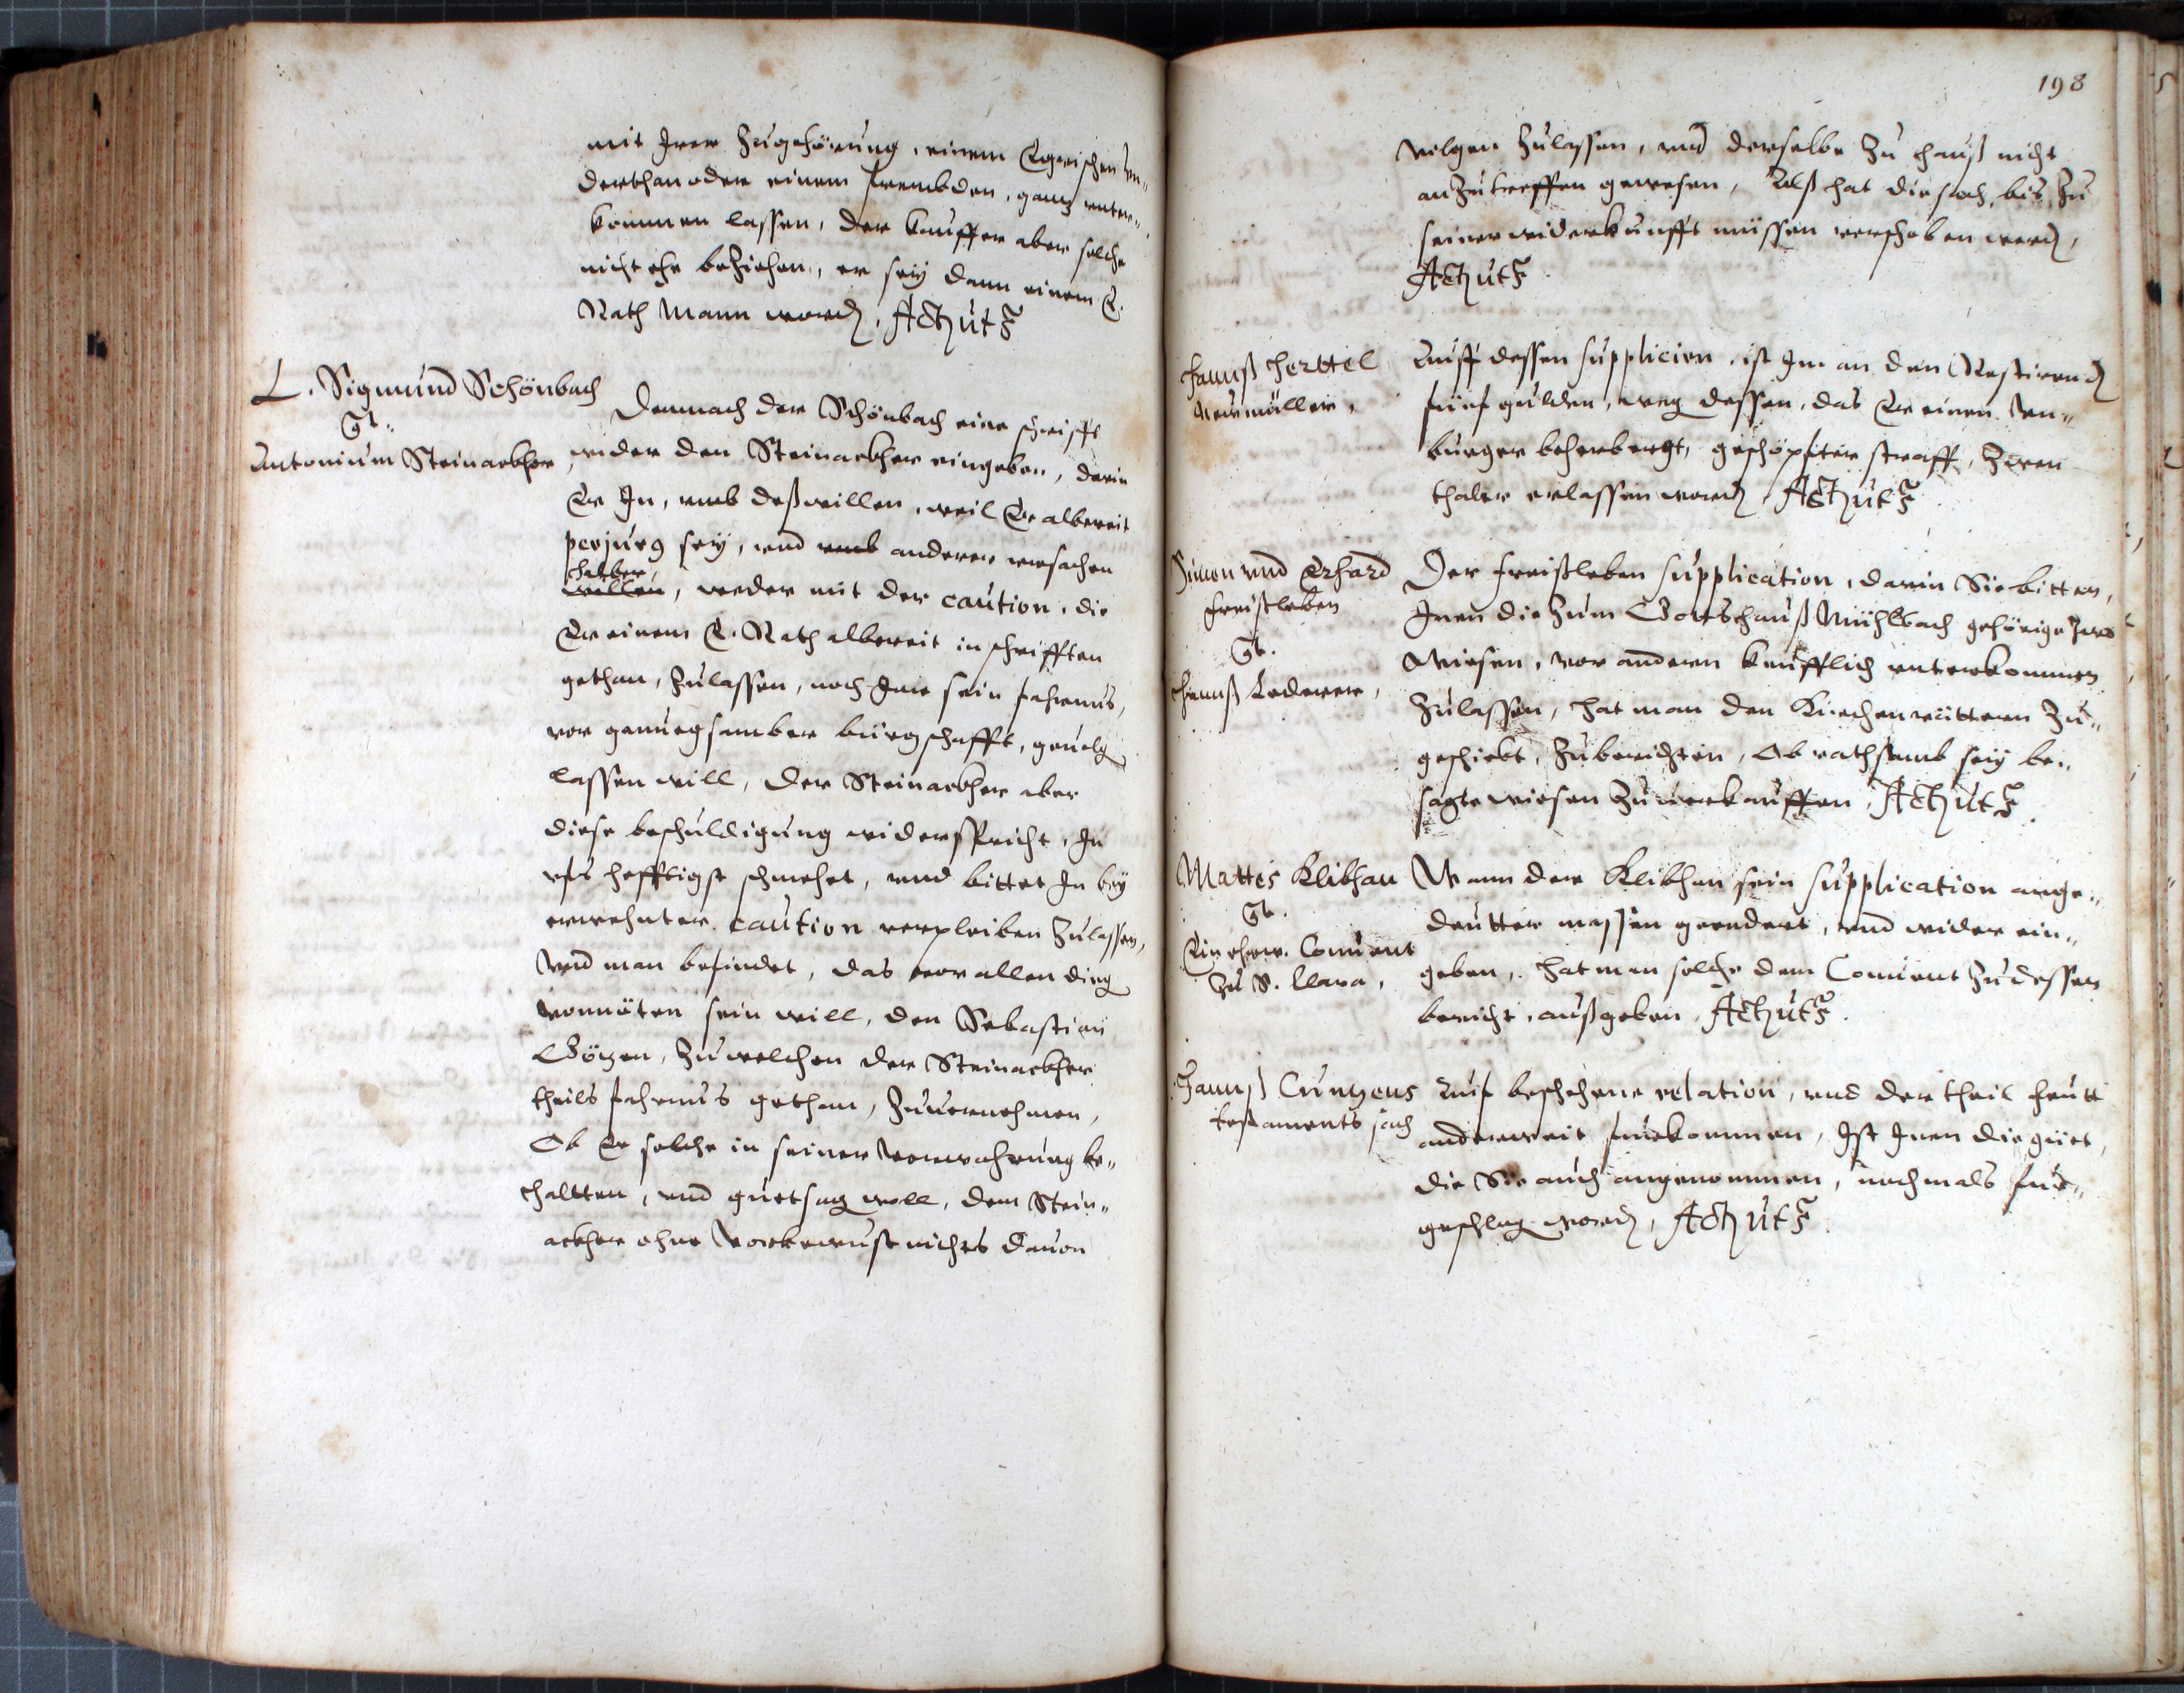 mit Irer Zugehörung, einem Egrischen Vn„
derthan oder einem frembden, ganz vnter„
kommen lassen, der kauffer aber solche
nicht ehe beziehen, er sey dann einem E.
Rath Mann wordn, Act. ut s.
L. Sigmund Schönbach
Ct.
Antonium Steinackher
Demnach der Schönbach eine schrifft
wider den Steinackher eingeben, darin
Er In, vmb deßwillen, weil Er albereit
perjurus sey, vnd vmb anderer vrsachen
halber
willen, weder mit der caution, die
Er einem E. Rath albereit in schrifften
gethan, zulassen, noch Ime sein fahrnus,
vor genuegsamber bürgschafft, geuolg
lassen will, Der Steinackher aber
diese beschuldigung widerspricht, In
vfs hefftigst schmehet, vnd bittet In bey
erwehnter caution verpleiben zulassen,
Vnd man befindet, das vor allen ding
vonnöten sein will, den Sebastian
Götzen, zu welchen der Steinackher
theils fahrnus gethan, zuuernehmen,
Ob Er solche in seiner Verwahrung be„
haltten, vnd guetsag woll, dem Stein„
ackher ohne Vorbewust nichts dauon
198
volgen zulassen, vnd derselbe zu hauß nicht
anzutreffen gewesen, Alß hat die sach, bis zu
seiner widerkunfft müssen verschoben werdn,
Act. ut s.
Hannß Herttel
Neumüller,
Auff dessen suppliciern, ist Im an den Restirendn
fünf gulden, weg dessen, das Er einen Vn„
burger beherbergt, geschöpfter straff, zween
thaler erlassen wordn, Act. ut s.
Simon vnd Erhard
Freißleben
Ct.
Hannß Lederer,
Der Freißleben supplication, darin Sie bitten,
Inen die zum Gottshauß Mühlbach gehörige zwo
Wiesen, vor andern keufflich vnterkommen
zulassen, hat man den Kirchenvättern zu„
geschickt, zuberichten, Ob rathsamb sey be„
sagte wiesen zuuerkauffen, Act. ut s.
Mattes Klibhan
Ct.
Ein ehrw. Conuent
zu S. Clara,
Wann der Klibhan sein supplication ange„
deutter massen geendert, vnd wider ein„
geben, hat man solche dem Conuent zu dessen
bericht, außgeben, Act. ut s.
Hannß Cunzens
testaments sach
Auf beschehene relation, vnd der theil heutt
anderweit fürkommen, Ist Inen die güet,
die Sie auch angenommen, nochmals für„
geschlag wordn, Act. ut s.